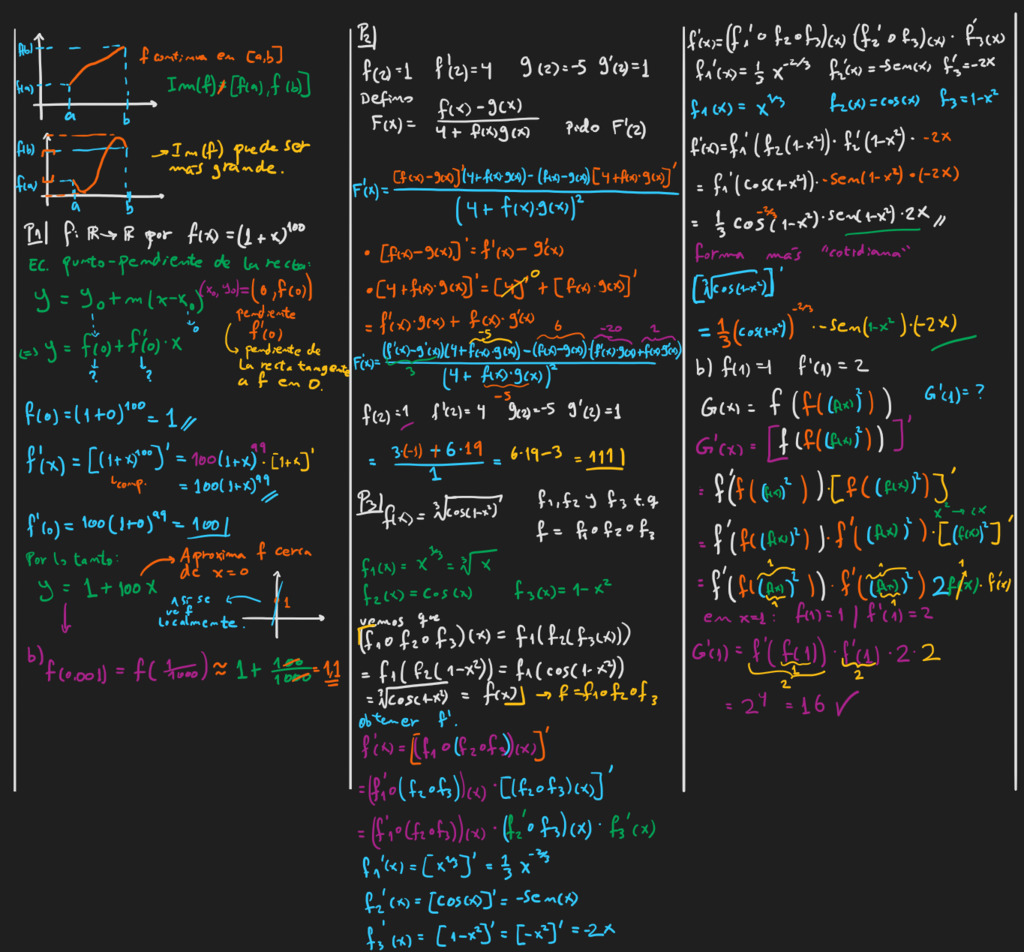 f(b)
f(a)
a b
f continua en [a,b]
Im(f) ≠ [f(a), f(b)]
f(b)
f(a)
a b
→ Im(f) puede ser
más grande.
P1] f: ℝ→ℝ por f(x)=(1+x)^100
Ec. punto-pendiente de la recta:
y = y₀ + m(x-x₀) (x₀, y₀)=(0, f(0))
↓ 0
pendiente
f'(0)
↳ pendiente de
la recta tangente
a f en 0.
(=) y = f(0) + f'(0)·x
? ?
f(0)=(1+0)^100 = 1 //
f'(x) = [(1+x)^100]' = 100(1+x)^99 · [1+x]'
↳comp. = 100(1+x)^99 //
f'(0) = 100(1+0)^99 = 100
Por lo tanto:
→ Aproxima f cerca
de x=0
y = 1 + 100x
Así se
ve f
localmente.
1
b) f(0.001) = f(1/1000) ≈ 1 + 100/1000 = 1,1
P2]
f(2)=1 f'(2)=4 g(2)=-5 g'(2)=1
Defino
F(x) = (f(x)-g(x))/(4+f(x)g(x)) pido F'(2)
F'(x) = ([f(x)-g(x)]'(4+f(x)·g(x))-(f(x)-g(x))[4+f(x)·g(x)]')/(4+f(x)·g(x))²
• [f(x)-g(x)]' = f'(x)-g'(x)
• [4+f(x)·g(x)]' = [4]' + [f(x)·g(x)]'
0
= f'(x)·g(x) + f(x)·g'(x)
-5 6 -20 1
F'(x) = ((f'(x)-g'(x))(4+f(x)·g(x))-(f(x)-g(x))·(f'(x)·g(x)+f(x)g'(x)))/(4+f(x)·g(x))²
3
-5
f(2)=1 f'(2)=4 g(2)=-5 g'(2)=1
= (3·(-1)+6·19)/1 = 6·19-3 = 111
P3] f(x) = ∛cos(1-x²) f₁, f₂ y f₃ t.q
f = f₁∘f₂∘f₃
f₁(x) = x^(1/3) = ∛x
f₂(x) = cos(x) f₃(x) = 1-x²
vemos que
(f₁∘f₂∘f₃)(x) = f₁(f₂(f₃(x)))
= f₁(f₂(1-x²)) = f₁(cos(1-x²))
= ∛cos(1-x²) = f(x) → f=f₁∘f₂∘f₃
obtener f'.
f'(x) = [(f₁∘(f₂∘f₃))(x)]'
= (f₁'∘(f₂∘f₃))(x) · [(f₂∘f₃)(x)]'
= (f₁'∘(f₂∘f₃))(x) · (f₂'∘f₃)(x) · f₃'(x)
f₁'(x) = [x^(1/3)]' = 1/3 x^(-2/3)
f₂'(x) = [cos(x)]' = -sen(x)
f₃'(x) = [1-x²]' = [-x²]' = -2x
f'(x) = (f₁'∘f₂∘f₃)(x) (f₂'∘f₃)(x) · f₃'(x)
f₁'(x) = 1/3 x^(-2/3) f₂'(x) = -sen(x) f₃' = -2x
f₁(x) = x^(1/3) f₂(x) = cos(x) f₃ = 1-x²
f'(x) = f₁'(f₂(1-x²)) · f₂'(1-x²) · -2x
= f₁'(cos(1-x²)) · -sen(1-x²) · (-2x)
= 1/3 cos^(-2/3)(1-x²) · sen(1-x²) · 2x //
forma más "cotidiana"
[∛cos(1-x²)]'
= 1/3 (cos(1-x²))^(-2/3) · -sen(1-x²) · (-2x)
b) f(1)=1 f'(1)=2
G(x) = f(f((f(x))²)) G'(1)=?
G'(x) = [f(f((f(x))²))]'
= f'(f((f(x))²)) · [f((f(x))²)]'
x² → 2x
= f'(f((f(x))²)) · f'((f(x))²) · [(f(x))²]'
1 1
= f'(f((f(x))²)) · f'((f(x))²) 2f(x) · f'(x)
1 1
en x=1: f(1)=1 / f'(1)=2
G'(1) = f'(f(1)) · f'(1) · 2 · 2
1
2 2
= 2⁴ = 16 ✓